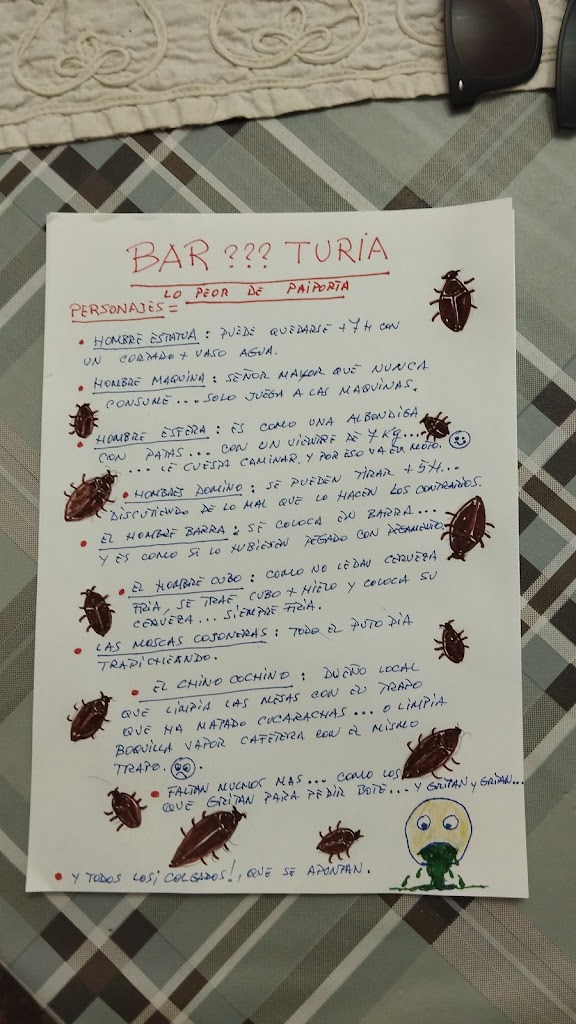 BAR ??? TURIA
LO PEOR DE PAIPORTA
PERSONAJES =
• HOMBRE ESTATUA : PUEDE QUEDARSE +7H CON
UN CORTADO + VASO AGUA.
• HOMBRE MAQUINA : SEÑOR MAYOR QUE NUNCA
CONSUME ... SOLO JUEGA A LAS MAQUINAS.
• HOMBRE ESFERA : ES COMO UNA ALBONDIGA
CON PATAS ... CON UN VIENTRE DE 7 Kg...
... LE CUESTA CAMINAR. Y POR ESO VA EN MOTO.
• HOMBRES DOMINO : SE PUEDEN TIRAR +5H...
DISCUTIENDO DE LO MAL QUE LO HACEN LOS CONTRARIOS.
• EL HOMBRE BARRA : SE COLOCA EN BARRA...
Y ES COMO SI LO HUBIESEN PEGADO CON PEGAMENTO.
• EL HOMBRE CUBO : COMO NO LE DAN CERVEZA
FRIA, SE TRAE CUBO + HIELO Y COLOCA SU
CERVEZA ... SIEMPRE FRIA.
• LAS MOSCAS COJONERAS : TODO EL PUTO DIA
TRAPICHEANDO.
• EL CHINO COCHINO : DUEÑO LOCAL
QUE LIMPIA LAS MESAS CON EL TRAPO
QUE HA MATADO CUCARACHAS ... O LIMPIA
BOQUILLA VAPOR CAFETERA CON EL MISMO
TRAPO.
• FALTAN MUCHOS MAS ... COMO LOS
QUE GRITAN PARA PEDIR BOTE ... Y GRITAN Y GRITAN...
• Y TODOS LOS ¡COLGADOS!, QUE SE APUNTAN.